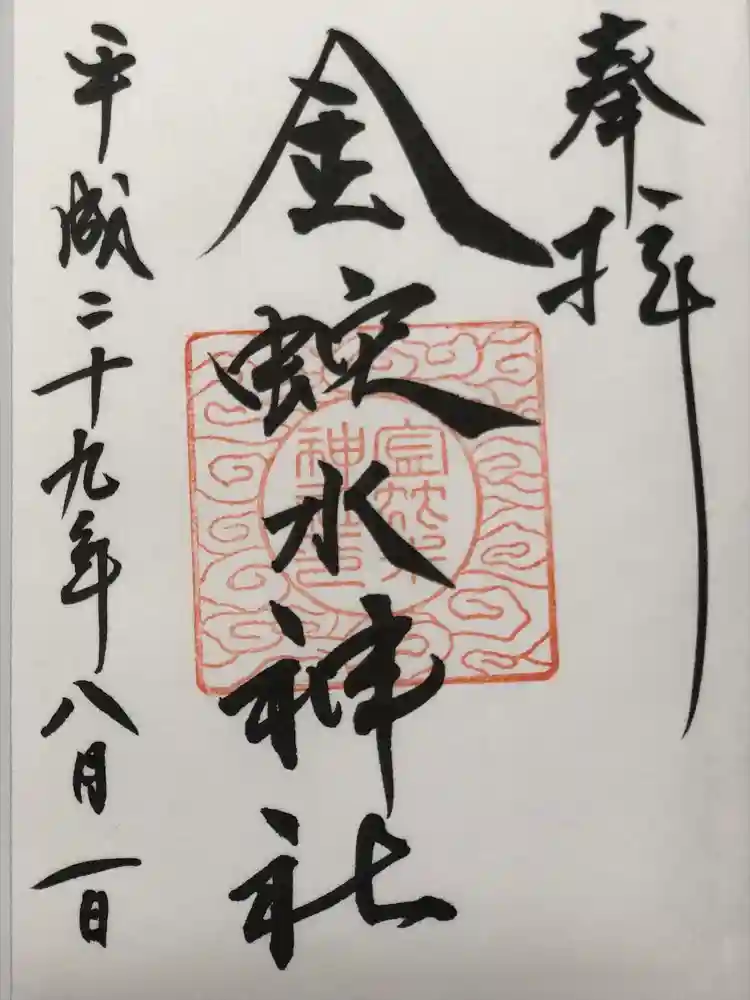 奉拝
金蛇水神社
平成二十九年八月一日